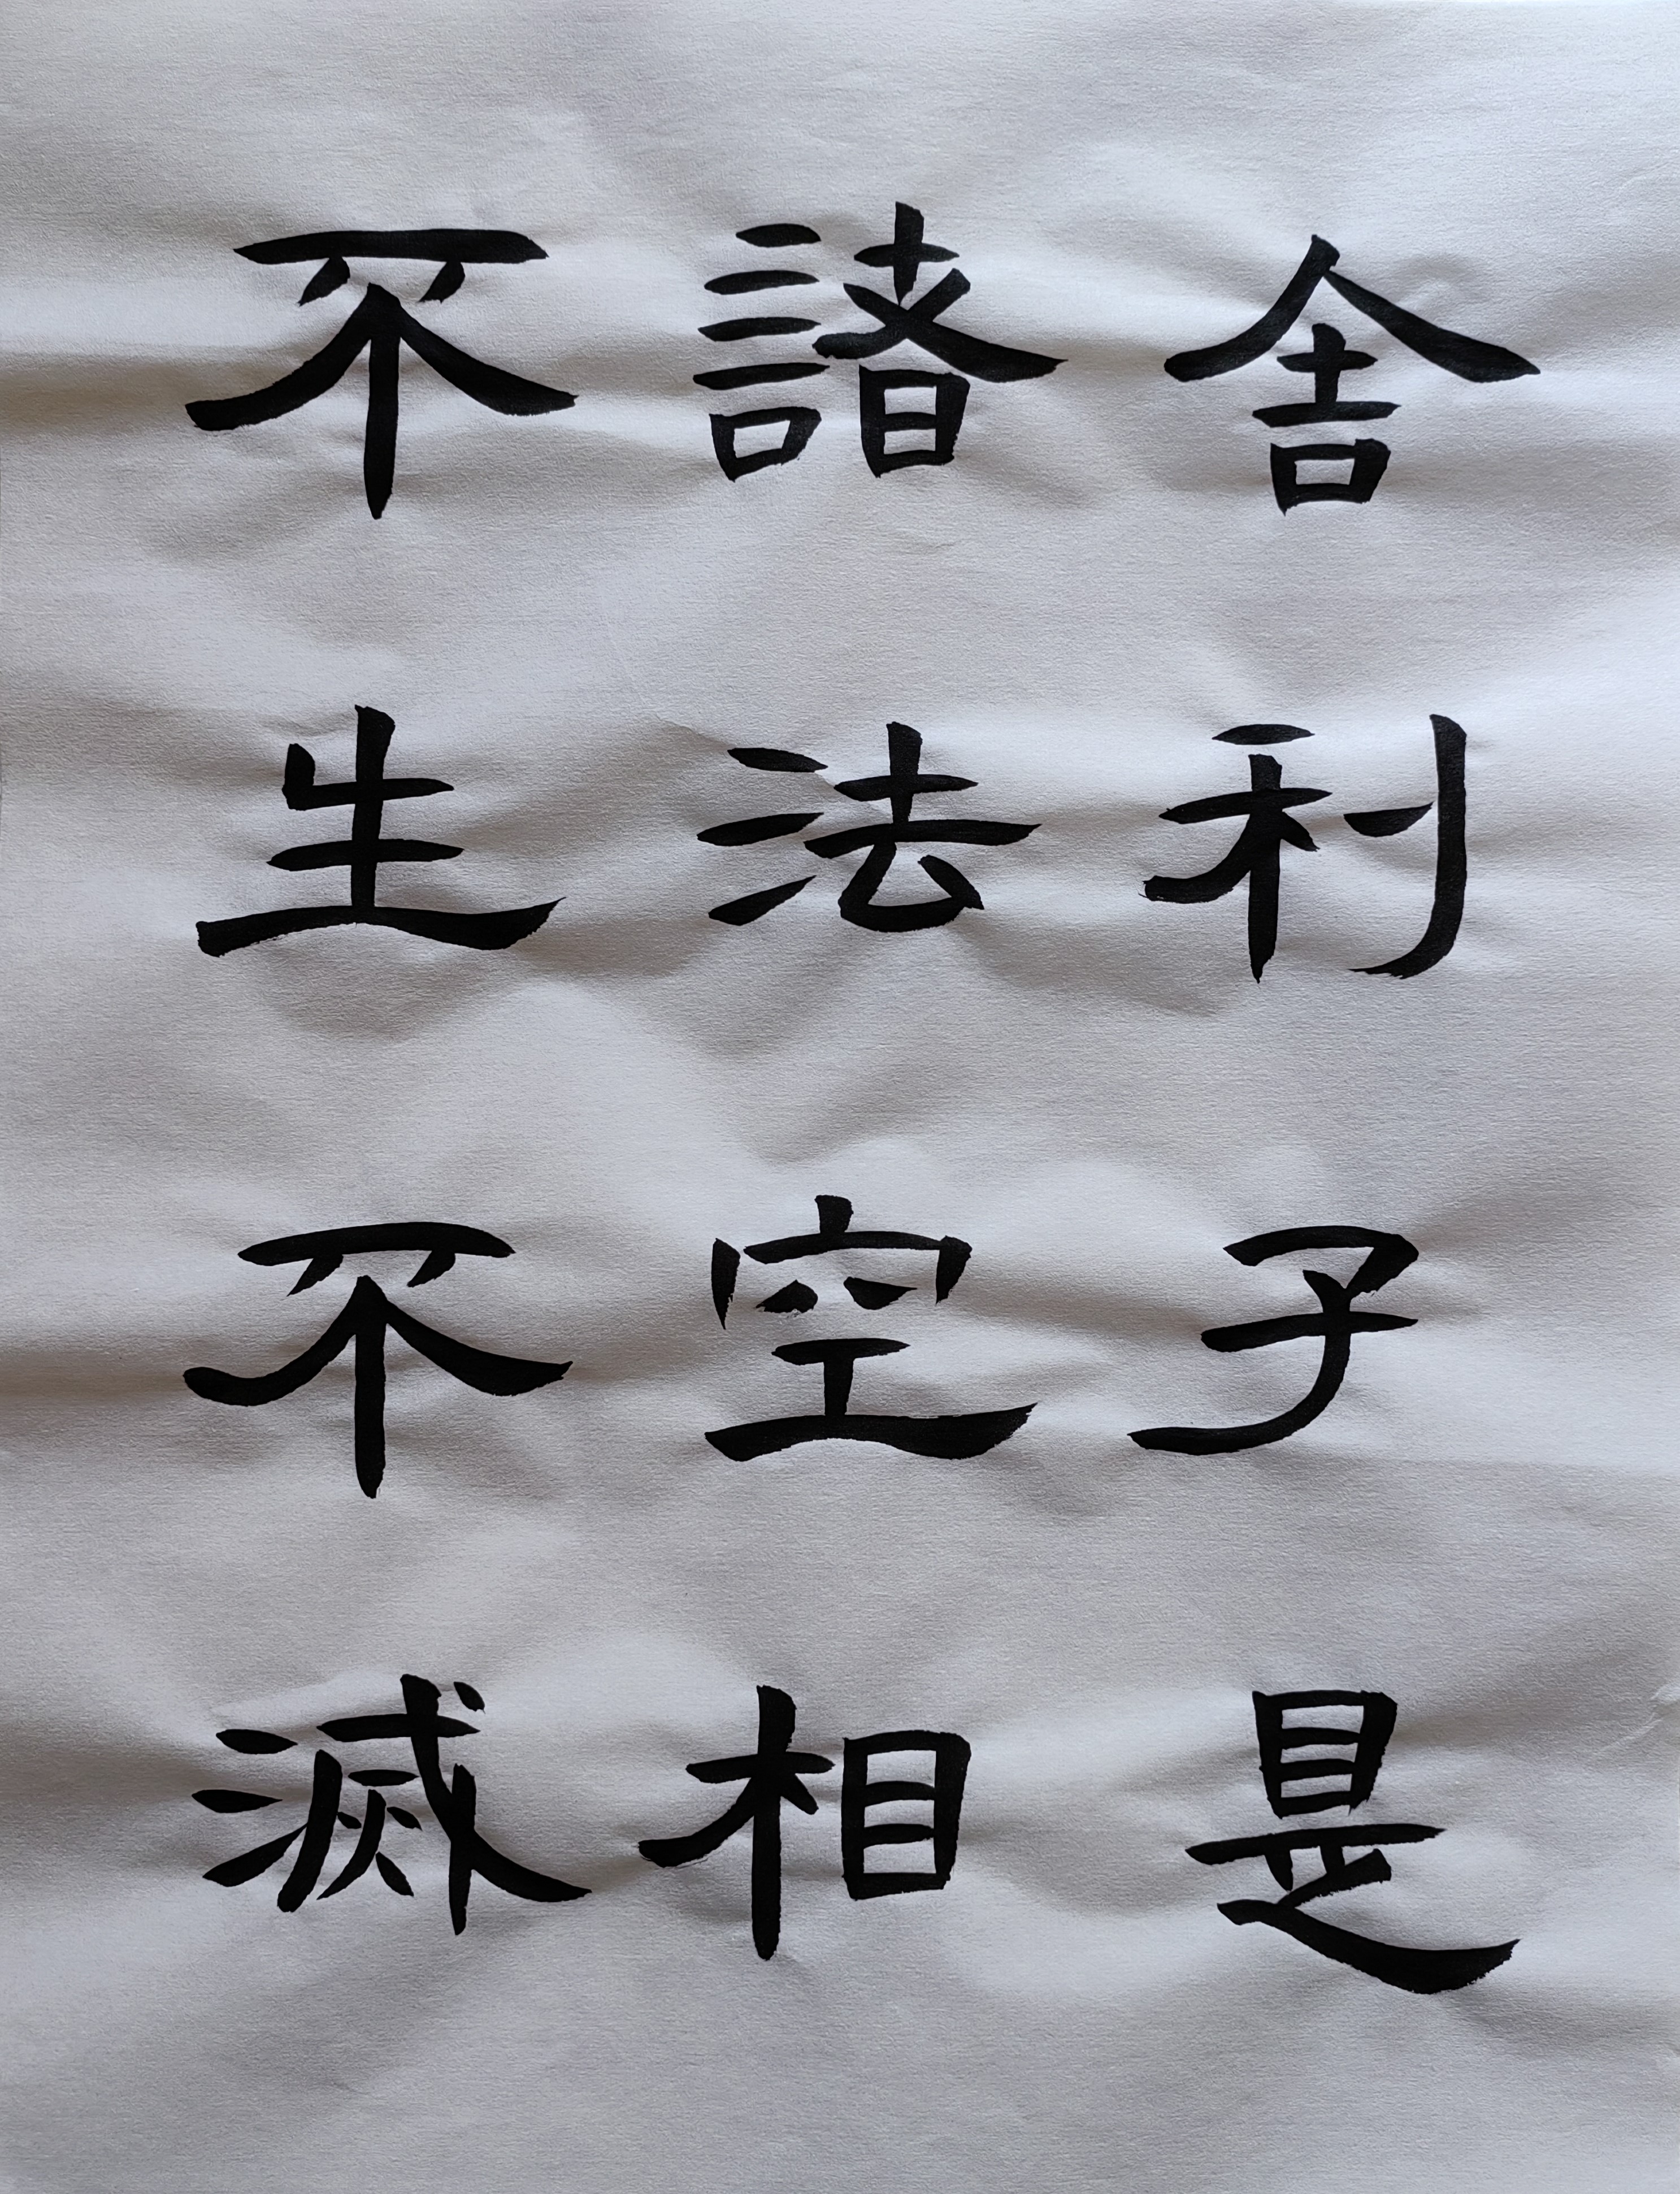 舍利子是
諸法空相
不生不滅